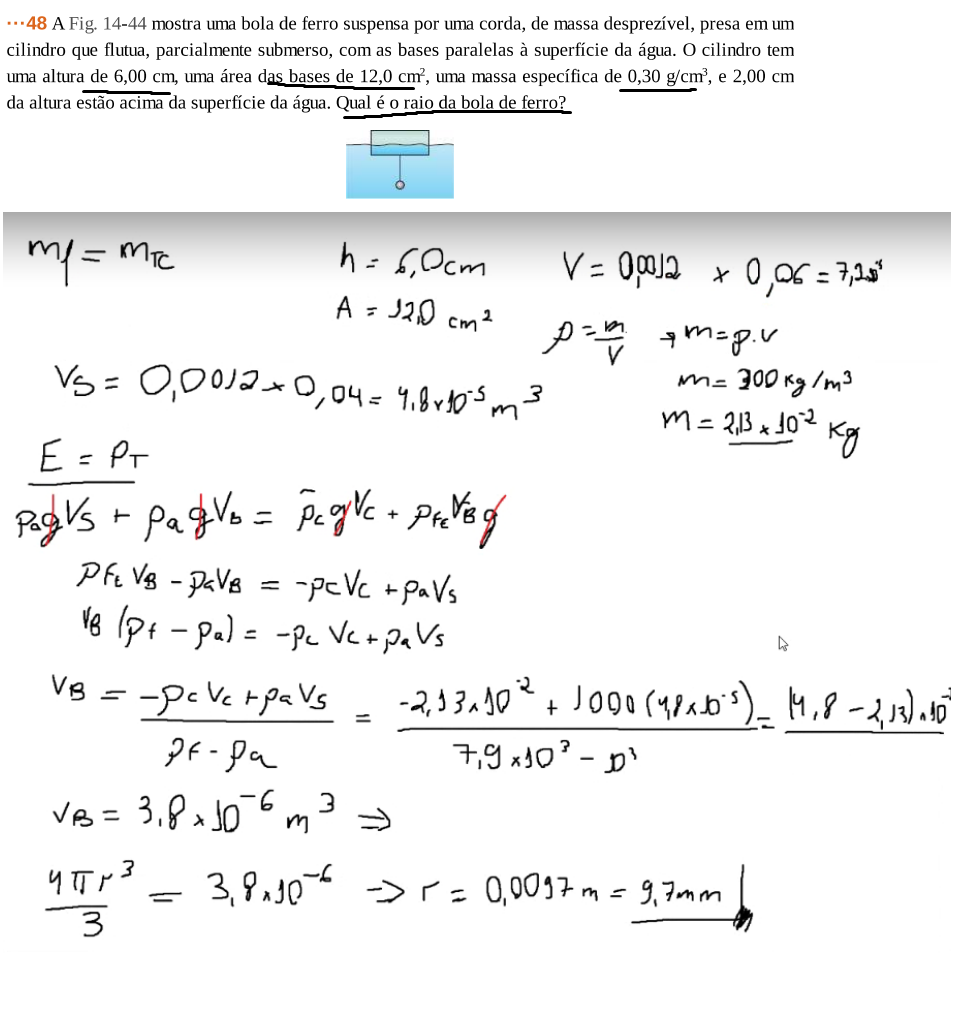 ···48 A Fig. 14-44 mostra uma bola de ferro suspensa por uma corda, de massa desprezível, presa em um
cilindro que flutua, parcialmente submerso, com as bases paralelas à superfície da água. O cilindro tem
uma altura de 6,00 cm, uma área das bases de 12,0 cm², uma massa específica de 0,30 g/cm³, e 2,00 cm
da altura estão acima da superfície da água. Qual é o raio da bola de ferro?
mf = mTC
h = 6,0cm
V = 0,0012 x 0,06 = 7,2
A = 12,0 cm²
ρ = m/V → m = ρ.V
Vs = 0,0012 x 0,04 = 4,8x10⁻⁵ m³
m = 300 kg/m³
m = 2,13 x 10⁻² Kg
E = PT
ρagVs + ρagVb = ρcgVc + ρFeVBg
ρFe VB - ρaVB = -ρcVc + ρaVs
VB (ρf - ρa) = -ρc Vc + ρa Vs
VB = (-ρc Vc + ρa Vs)/(ρF - ρa) = (-2,13x10⁻² + 1000 (4,8x10⁻⁵))/(7,9x10³ - 10³) = (4,8 - 2,13).10
VB = 3,8 x 10⁻⁶ m³ ⇒
4πr³/3 = 3,8x10⁻⁶ → r = 0,0097 m = 9,7mm